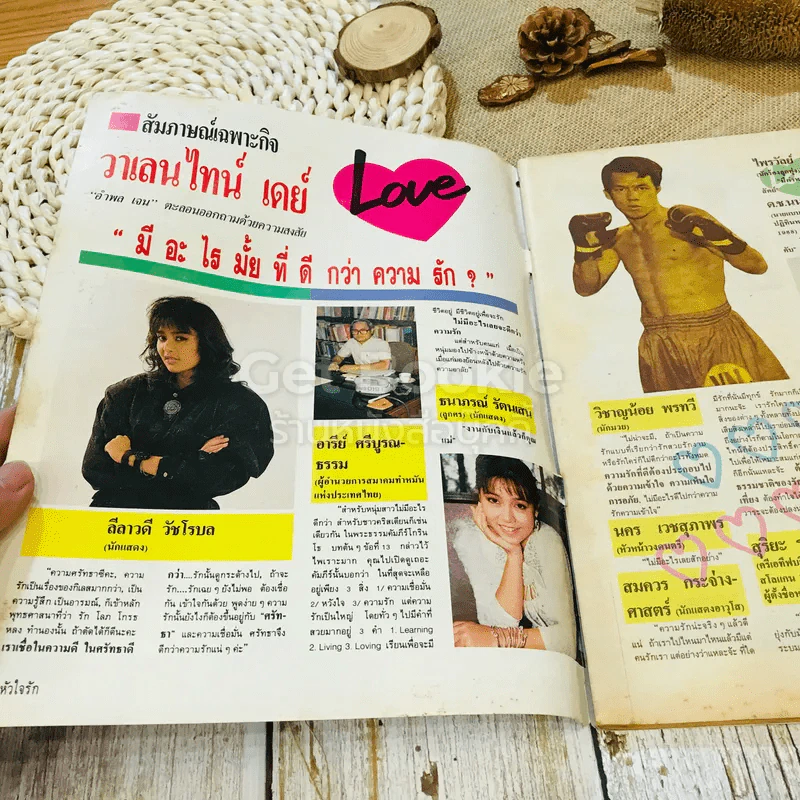 สัมภาษณ์เฉพาะกิจ
วาเลนไทน์ เดย์
Love
“อำพล เจน” ตะลอนออกถามด้วยความสงสัย
“ มี อะ ไร มั้ย ที่ ดี กว่า ความ รัก ? ”
ลีลาวดี วัชโรบล
(นักแสดง)
“ความศรัทธาซีคะ, ความ
รักเป็นเรื่องของกิเลสมากกว่า, เป็น
ความรู้สึก เป็นอารมณ์, ก็เข้าหลัก
พุทธศาสนาที่ว่า รัก โลภ โกรธ
หลง ทำนองนั้น ถ้าตัดได้ก็ดีนะคะ
เราเชื่อในความดี ในศรัทธาดี
กว่า....รักนั้นดูกระด้างไป, ถ้าจะ
รัก....รักเฉย ๆ ยังไม่พอ ต้องเชื่อ
กัน เข้าใจกันด้วย พูดง่าย ๆ ความ
รักนั้นยังไงก็ต้องขึ้นอยู่กับ “ศรัท-
ธา” และความเชื่อมั่น ศรัทธาจึง
ดีกว่าความรักแน่ ๆ ค่ะ”
อารีย์ ศรีบูรณ-
ธรรม
(ผู้อำนวยการสมาคมทำหมัน
แห่งประเทศไทย)
“สำหรับหนุ่มสาวไม่มีอะไร
ดีกว่า สำหรับชาวคริสเตียนก็เช่น
เดียวกัน ในพระธรรมคัมภีร์โกริน
โธ บทต้น ๆ ข้อที่ 13 กล่าวไว้
ไพเราะมาก คุณไปเปิดดูเถอะ
คัมภีร์นั้นบอกว่า ในที่สุดจะเหลือ
อยู่เพียง 3 สิ่ง 1/ ความเชื่อมั่น
2/ หวังใจ 3/ ความรัก แต่ความ
รักเป็นใหญ่ โดยทั่ว ๆ ไปมีคำที่
สวยมากอยู่ 3 คำ 1. Learning
2. Living 3. Loving เรียนเพื่อจะมี
ชีวิตอยู่ มีชีวิตอยู่เพื่อจะรัก
ไม่มีอะไรเลยจะดีกว่า
ความรัก
แต่สำหรับคนแก่
ธนาภรณ์ รัตนเสน
(ลูกตาร) (นักแสดง)
“งานกับเงินแล้วก็คุณ
แม่”
หัวใจรัก
วิชาญน้อย พรทวี
(นักมวย)
“ไม่น่าจะมี, ถ้าเป็นความ
รักแบบที่เรียกว่ารักสวยรักงาม
ความรักที่ดีต้องประกอบไป
ด้วยความเข้าใจ ความเห็นใจ
การอภัย, ไม่มีอะไรไปกว่าความ
รักความเข้าใจ”
นคร เวชสุภาพร
(หัวหน้าวงดนตรี)
“ไม่มีอะไรเลยสักอย่าง”
สมควร กระจ่าง-
ศาสตร์ (นักแสดงอาวุโส)
“ความรักน่ะจริง ๆ แล้วดี
แน่ ถ้าเราไปไหนมาไหนแล้วมีแต่
คนรักเรา แต่อย่างว่าแหละจ้ะ ที่ใด
ไพรวัลย์
สุริยะ
Get Bookie
ร้านหนังสือบุ๊คกี้